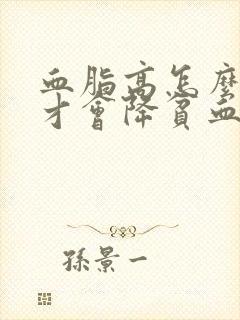 血脂高怎麼
才會降賓血
孫景一